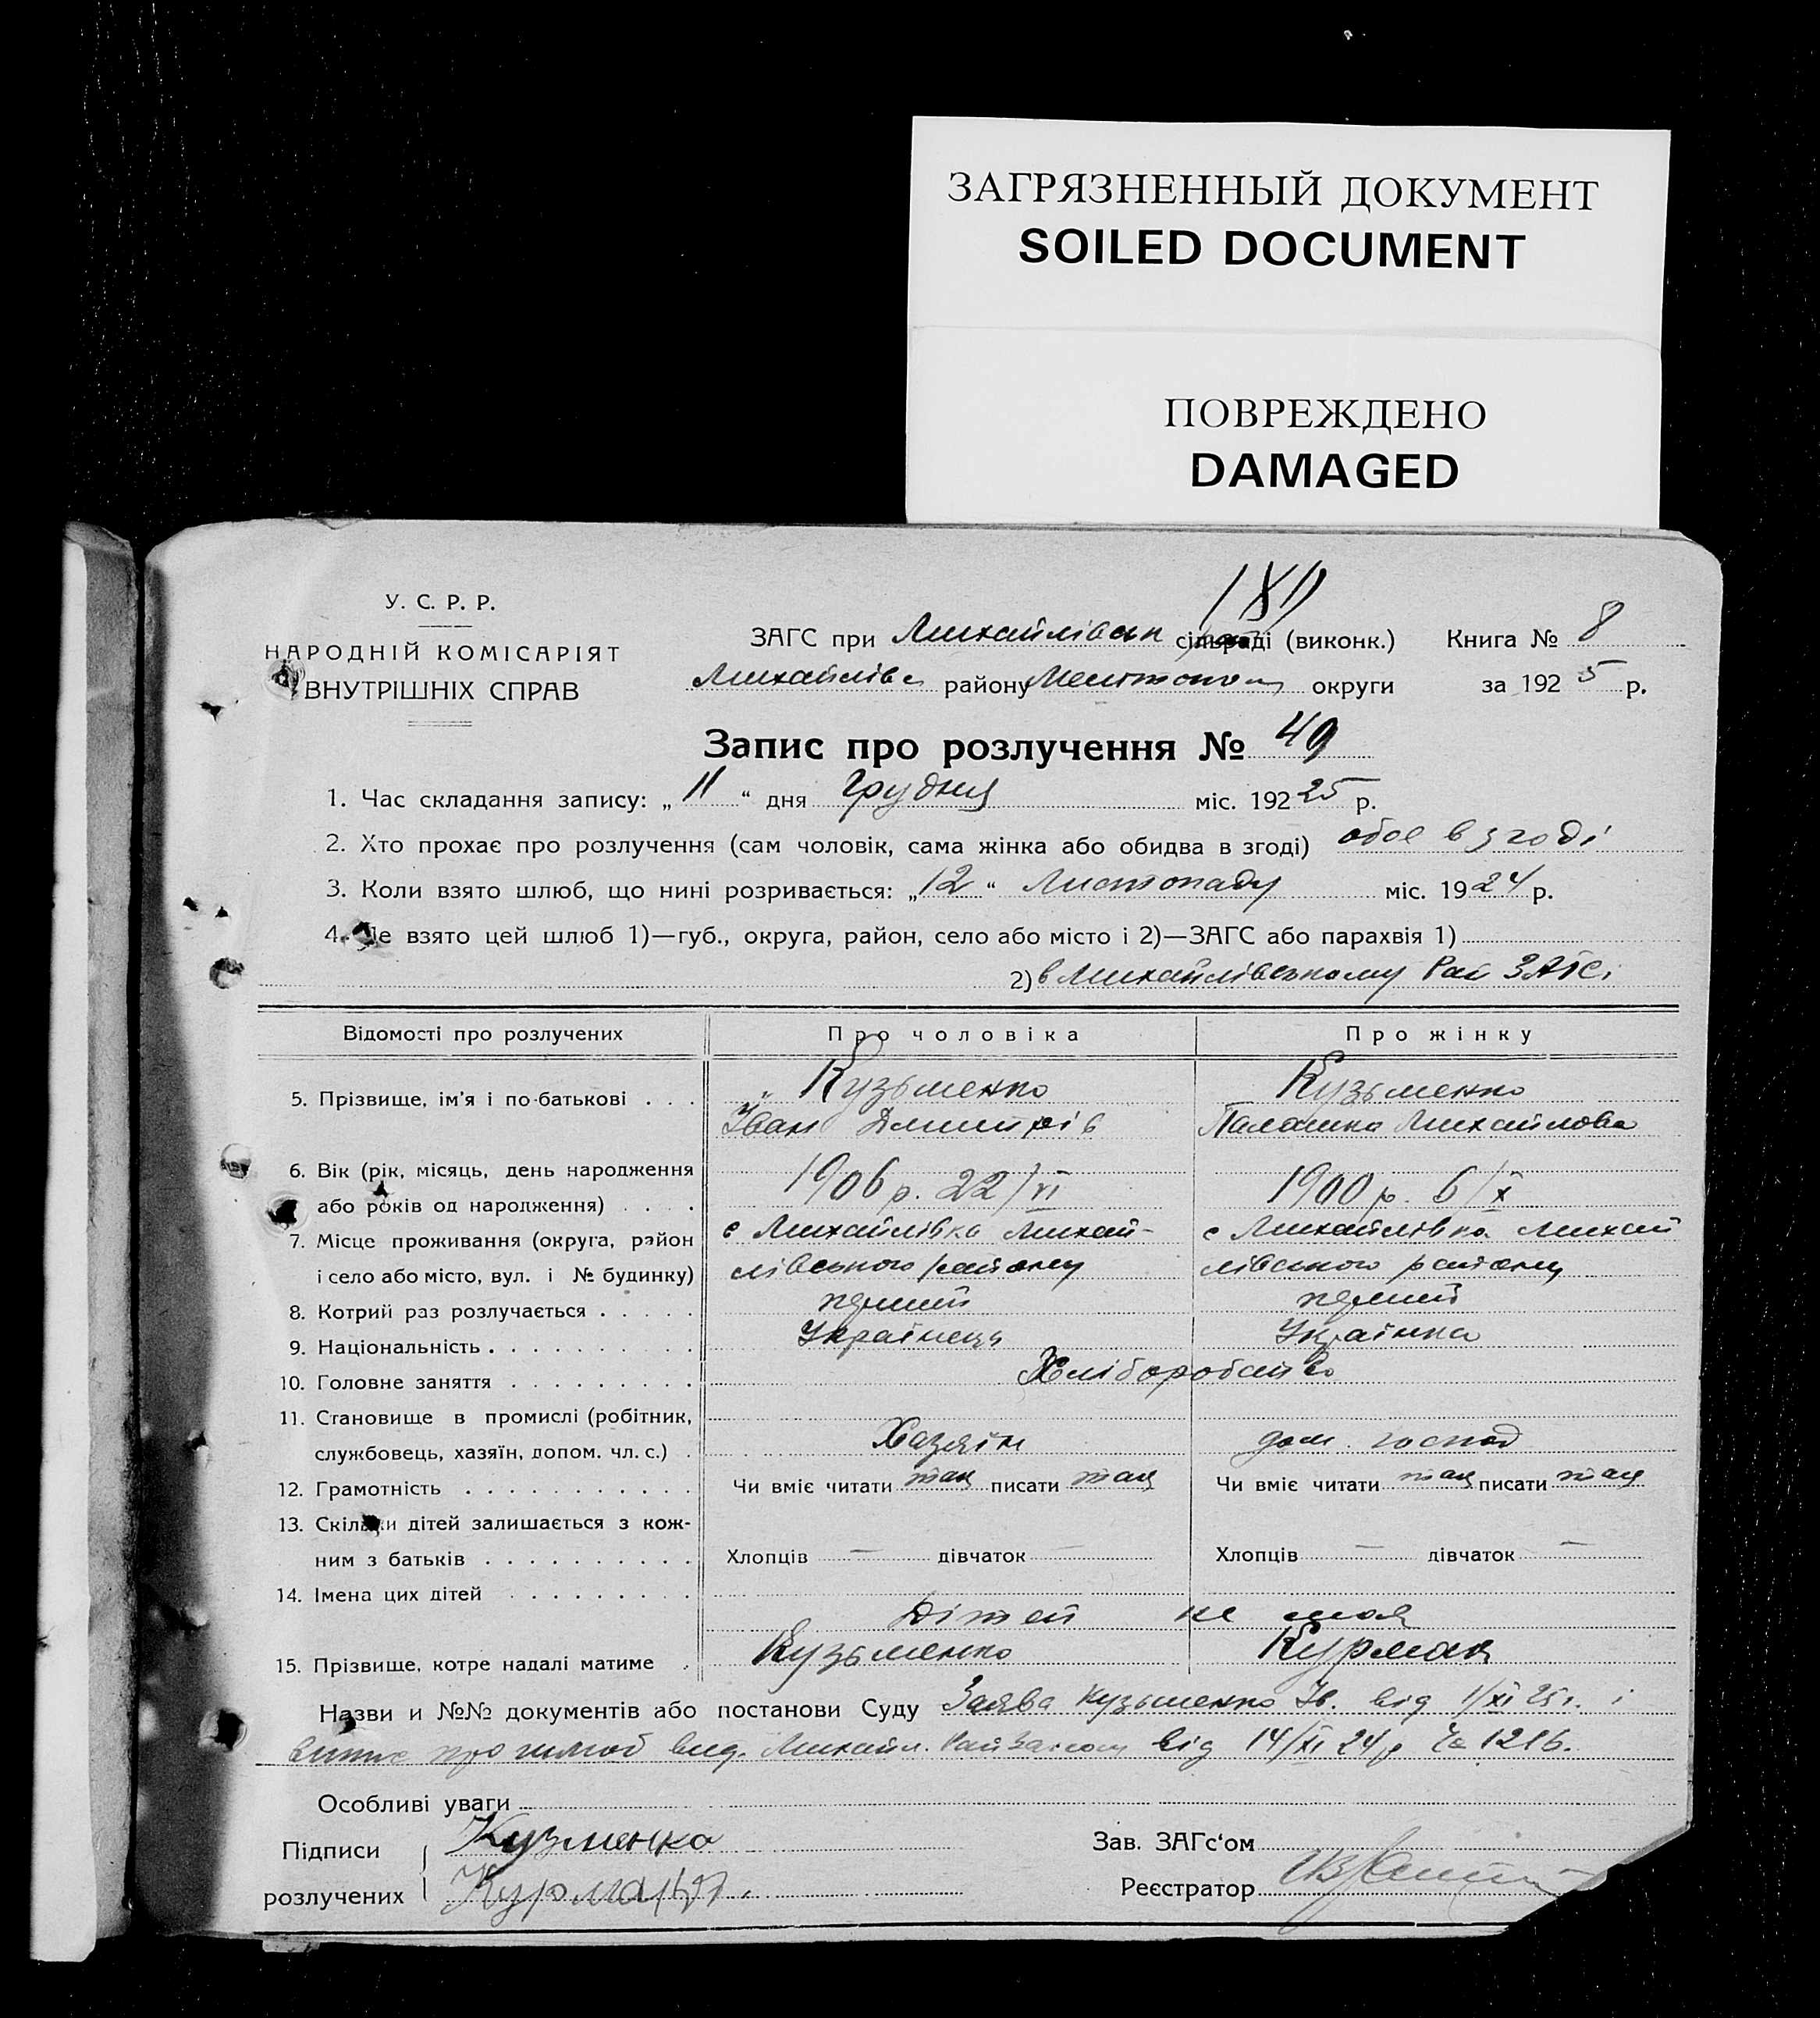 ЗАГРЯЗНЕННЫЙ ДОКУМЕНТ
SOILED DOCUMENT
ПОВРЕЖДЕНО
DAMAGED
У. С. Р. Р.
НАРОДНІЙ КОМІСАРІЯТ
ВНУТРІШНІХ СПРАВ
ЗАГС при Михайлівськ сільраді (виконк.) Книга № 8
Михайлівс району Мелітопол округи за 192 5 р.
Запис про розлучення № 49
1. Час складання запису: „ 11 “ дня Грудня міс. 192 25 р.
2. Хто прохає про розлучення (сам чоловік, сама жінка або обидва в згоді) обоє в згоді
3. Коли взято шлюб, що нині розривається: „ 12 “ Листопаду міс. 19 24 р.
4. Де взято цей шлюб 1)—губ., округа, район, село або місто і 2)—ЗАГС або парахвія 1)
2) в Михайлівському Рай ЗАГСі
Відомості про розлучених Про чоловіка Про жінку
5. Прізвище, ім'я і по-батькові . . . „ Кузьменко Кузьменко
Іван Дмитрів Палажка Михайлова
6. Вік (рік, місяць, день народження
або років од народження) . . . . 1906 р. 22/VI 1900 р. 6/X
7. Місце проживання (округа, район с Михайлівка Михай- с Михайлівка Михай
і село або місто, вул. і № будинку) лівського району лівського району
8. Котрий раз розлучається . . . . . перший перший
9. Національність . . . . . . . . . . Українець Українка
10. Головне заняття . . . . . . . . . Хліборобство
11. Становище в промислі (робітник,
службовець, хазяїн, допом. чл. с.) . Хазяїн дом. господ
12. Грамотність . . . . . . . . . . . Чи вміє читати так писати так Чи вміє читати так писати так
13. Скільки дітей залишається з кож-
ним з батьків . . . . . . . . . . Хлопців — дівчаток — Хлопців — дівчаток —
14. Імена цих дітей . . . . . . . . .
Дітей не має
15. Прізвище, котре надалі матиме . Кузьменко Курман
Назви и №№ документів або постанови Суду Заява Кузьменко Ів. від 1/XI 25 г. і
витис про шлюб вид. Михайл. Рай Загсом від 14/XI 24 р За 1216.
Особливі уваги
Підписи Кузменко Зав. ЗАГс‘ом
розлучених Реєстратор